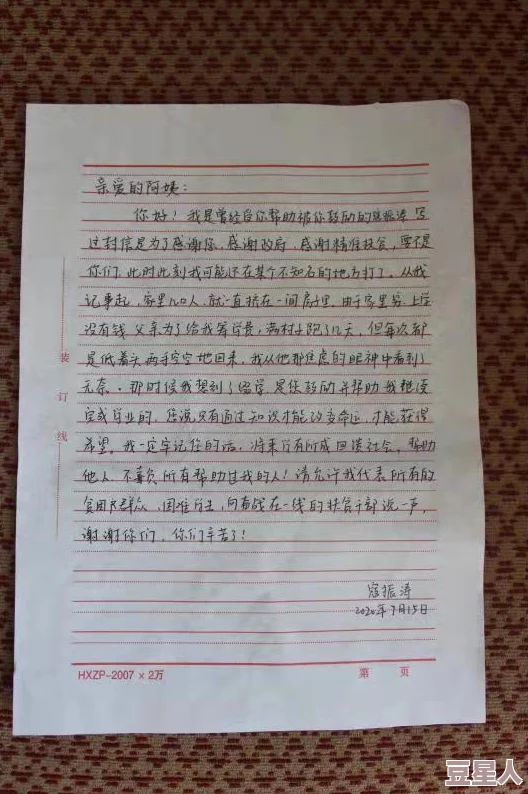 亲爱的阿姨：
你好！我是曾经受你帮助被你鼓励的寇振涛 写
这封信是为了感谢您、感谢政府、感谢精准扶贫，要不是
你们，此时此刻我可能还在某个不知名的地方打工。从我
记事起，家里几口人，就一直挤在一间房子里，由于家里穷，上学
没有钱 父亲为了给我筹学费，满村子跑了几天，但每次都
是低着头两手空空地回来，我从他那焦虑的眼神中看到了
无奈。那时候我想到了辍学 是您鼓励并帮助我
完成学业的，您说只有通过知识才能改变命运，才能获得
希望。我一定牢记您的话，将来学有所成回馈社会，帮助
他人 不辜负所有帮助过我的人！请允许我代表所有的
贫困户群众、困难学生，向奋战在一线的扶贫干部说一声，
谢谢你们，你们辛苦了！
寇振涛
2020年7月15日
装订线
HXZP-2007×2万
第 页
豆星人